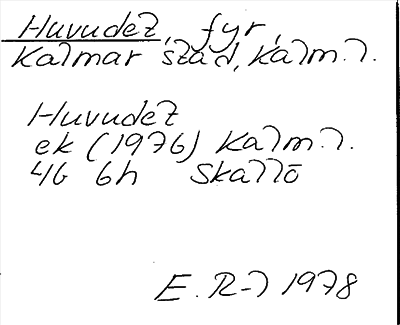 Huvudet, fyr,
Kalmar stad, Kalm. l.
Huvudet
ek (1976) Kalm. l.
4G 6h Skallö
E. R-l 1978